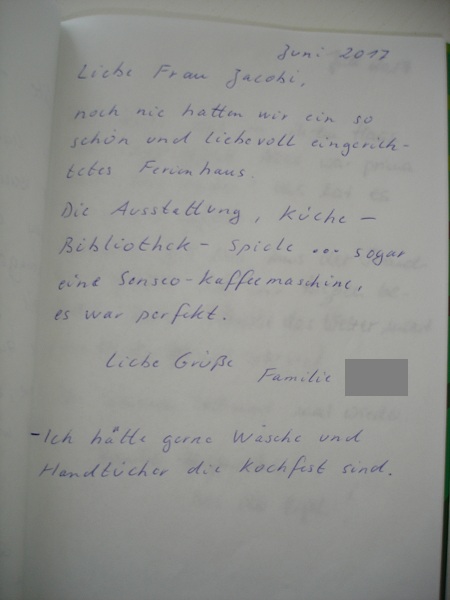 Juni 2017
Liebe Frau Jacobi,
noch nie hatten wir ein so
schön und liebevoll eingerich-
tetes Ferienhaus.
Die Ausstattung, Küche -
Bibliothek - Spiele ... sogar
eine Senseo-Kaffeemaschine,
es war perfekt.
Liebe Grüße
Familie
- Ich hätte gerne Wäsche und
Handtücher die kochfest sind.